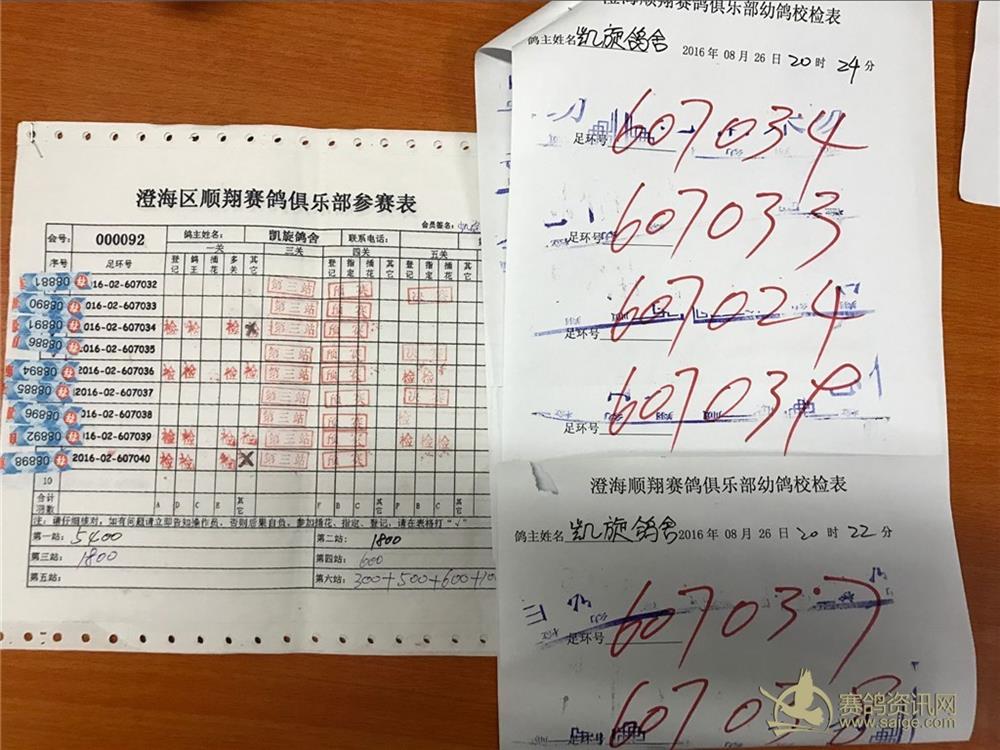 澄海区顺翔赛鸽俱乐部参赛表
会员签名:
会号: 000092 鸽主姓名: 凯旋鸽舍 联系电话:
一关 三关 四关 五关
序号 足环号 登记 鸽王 插花 多关 其它 登记 指定 插花 其它 登记 指定 插花 其它
08881 2016-02-607032 第三站 预赛 决赛
08890 016-02-607033 第三站 预赛
08891 016-02-607034 检 检 检 第三站 预赛
08886 2016-02-607035 第三站 预赛
08894 2016-02-607036 检 检 检 检 第三站 预赛 检 检
08885 2016-02-607037 第三站 预赛 决赛
08896 016-02-607038 第三站 预赛
08892 016-02-607039 检 检 检 检 第三站 预赛 检 检 检
08898 2016-02-607040 检 检 检 第三站 预赛
10
合计羽数 A D C E 其它 F B C 其它
注: 请仔细核对, 如有问题请立即告知操作员, 否则后果自负, 参加插花、指定、登记, 请在表格打"√"
第一站: 5400 第二站: 1800
第三站: 1800 第四站: 600
第五站: 第六站: 300+500+600+
澄海顺翔赛鸽俱乐部幼鸽校检表
鸽主姓名 凯旋鸽舍 2016 年 08 月 26 日 20 时 24 分
足环号 607034
足环号 607033
足环号 607024
足环号 607039
澄海顺翔赛鸽俱乐部幼鸽校检表
鸽主姓名 凯旋鸽舍 2016 年 08 月 26 日 20 时 22 分
足环号 607037
60703
赛鸽资讯网
www.saige.com